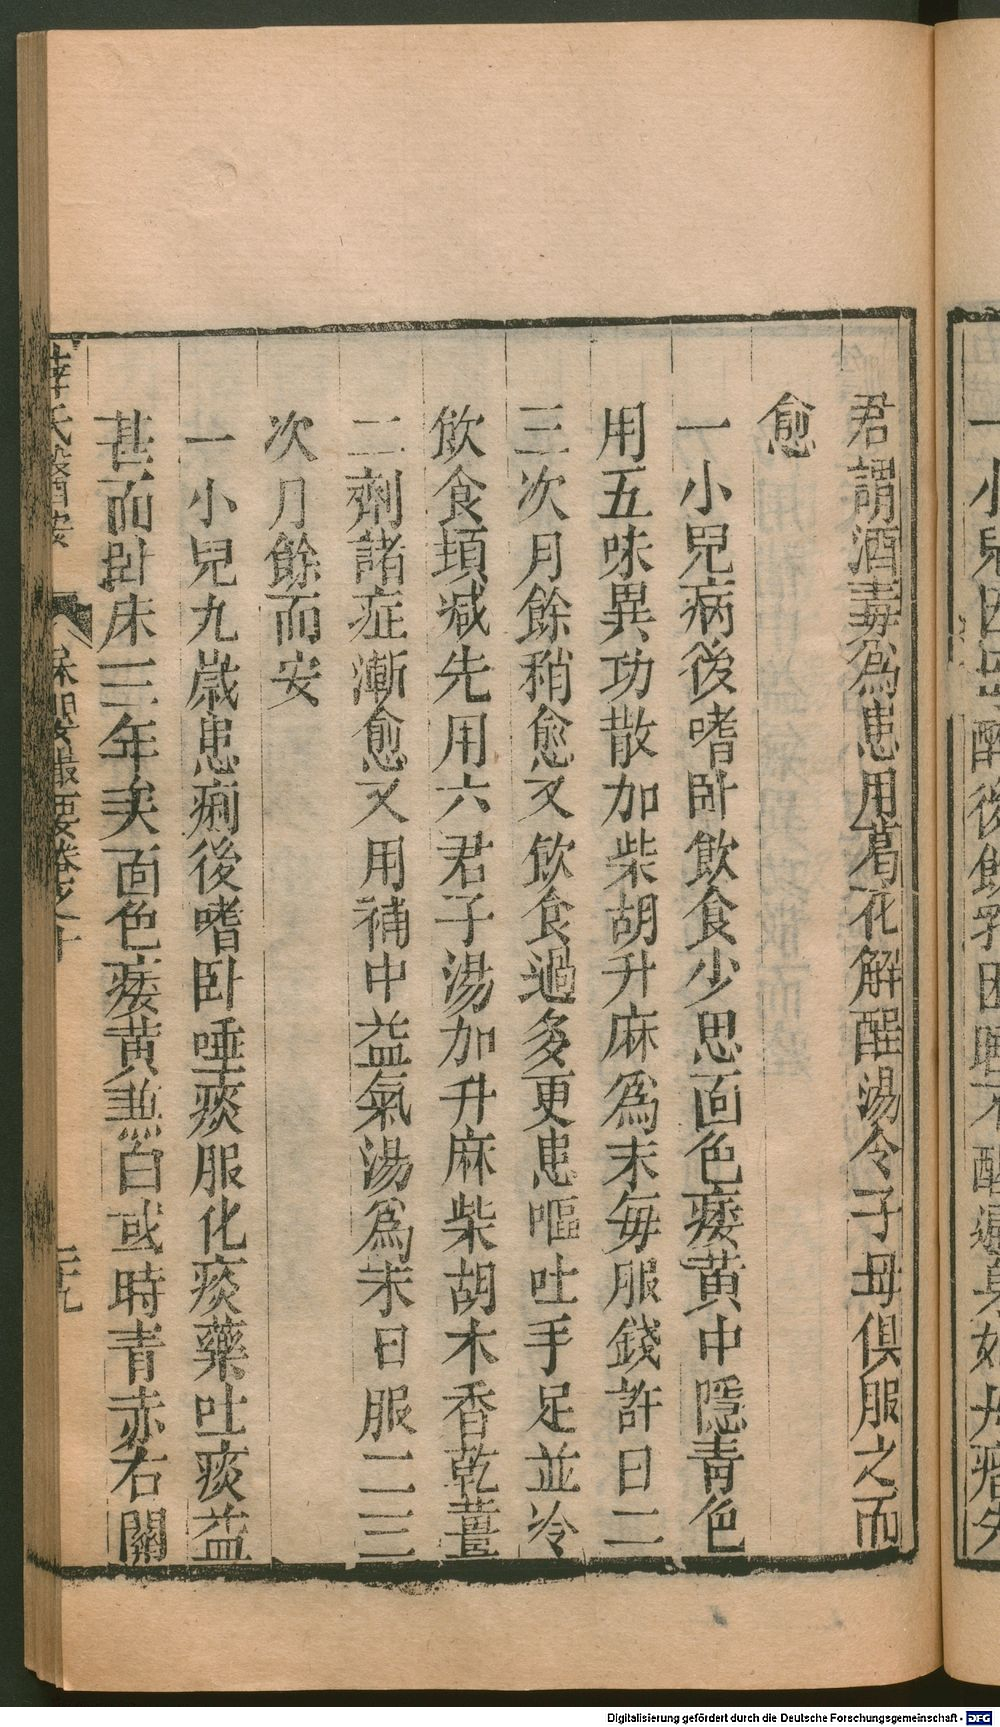 一小兒因母醉後飲乳困睡不醒遍身如丹瘄先
君謂酒毒爲患用葛花解酲湯令子母俱服之而
愈
一小兒病後嗜卧飲食少思面色痿黄中隱青色
用五味異功散加柴胡升麻爲末每服錢許日二
三次月餘稍愈又飲食過多更患嘔吐手足並冷
飲食頃减先用六君子湯加升麻柴胡木香乾薑
二劑諸症漸愈又用補中益氣湯爲末日服二三
次月餘而安
一小兒九歲患痢後嗜卧唾痰服化痰藥吐痰益
甚而卧床三年矣面色痿黄兼白或時青赤右關
薛氏醫按 保嬰撮要卷之十 三九
Digitalisierung gefördert durch die Deutsche Forschungsgemeinschaft - DFG